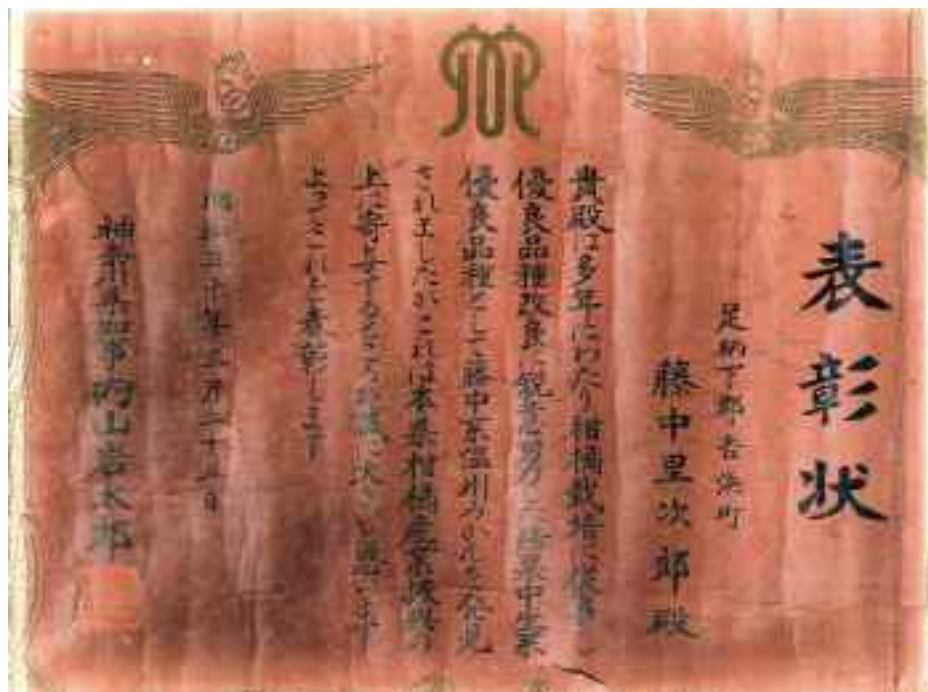 表彰状
足柄下郡吉浜町
藤中里次郎殿
貴殿は多年にわたり柑橘栽培に従事し
優良品種改良に鋭意努力の結果中生系
優良品種として藤中系温州みかんを発見
されましたがこれは本県柑橘産業振興
上に寄与するところ誠に大
よってこれを表彰します
昭和三十年三月二十
神奈川県知事内山岩太郎